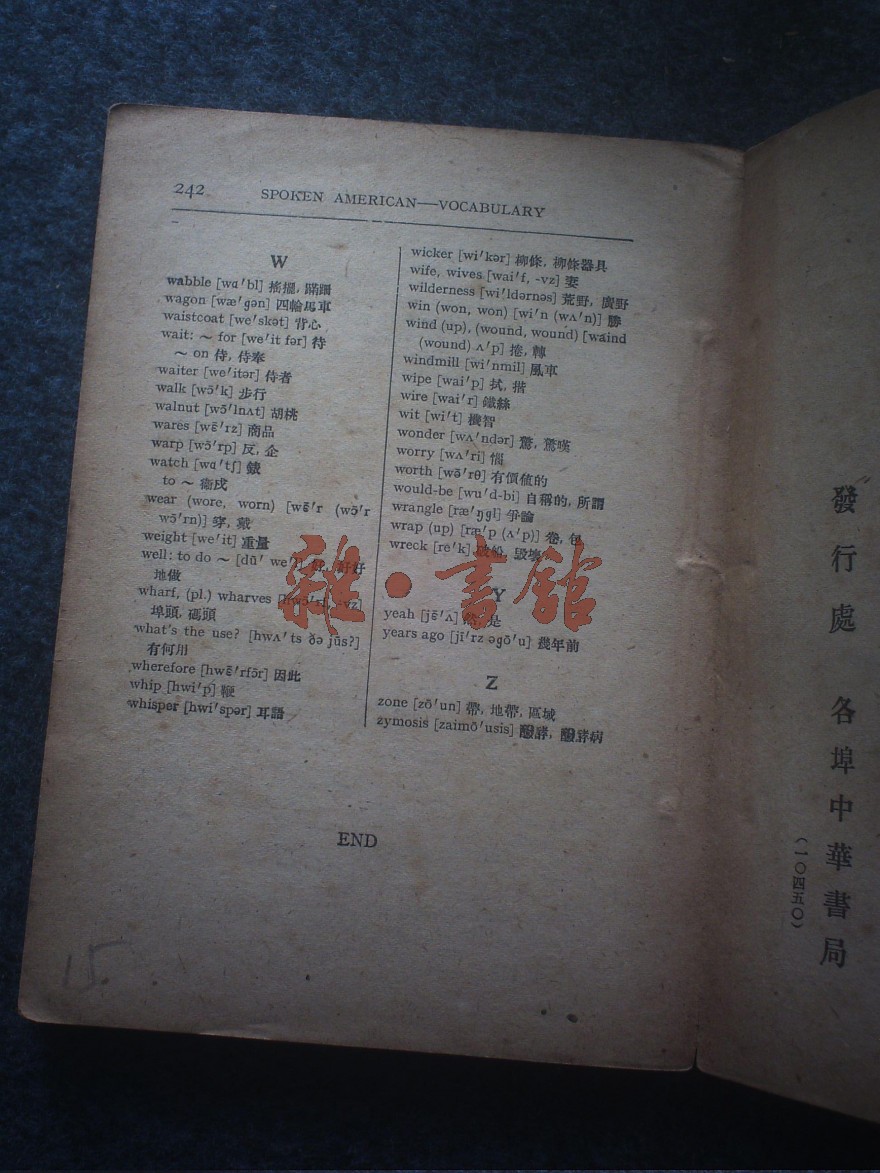 242 SPOKEN AMERICAN—VOCABULARY
W
wabble [wɑ'bl] 搖擺, 蹣跚
wagon [wæ'gən] 四輪馬車
waistcoat [we'skət] 背心
wait: ~ for [we'it fər] 待
~ on 侍, 侍奉
waiter [we'itər] 侍者
walk [wɔ̄'k] 步行
walnut [wɔ̄'lnʌt] 胡桃
wares [wɛ̄'rz] 商品
warp [wɔ̄'rp] 反, 企
watch [wɑ'tʃ] 錶
to ~ 衞戍
wear (wore, worn) [wɛ̄'r (wɔ̄'r
wɔ̄'rn)] 穿, 戴
weight [we'it] 重量
well: to do ~ [dū' we'l] 好好
地做
wharf, (pl.) wharves [hwɔ̄'rf, -vz]
埠頭, 碼頭
what's the use? [hwʌ'ts ðə jūs?]
有何用
wherefore [hwɛ̄'rfɔ̄r] 因此
whip [hwi'p] 鞭
whisper [hwi'spər] 耳語
wicker [wi'kər] 柳條, 柳條器具
wife, wives [wai'f, -vz] 妻
wilderness [wi'ldərnəs] 荒野, 廣野
win (won, won) [wi'n (wʌ'n)] 勝
wind (up), (wound, wound) [waind
(wound) ʌ'p] 捲, 轉
windmill [wi'nmil] 風車
wipe [wai'p] 拭, 揩
wire [wai'r] 鐵絲
wit [wi't] 機智
wonder [wʌ'ndər] 驚, 驚嘆
worry [wʌ'ri] 惱
worth [wə̄'rθ] 有價値的
would-be [wu'd-bi] 自稱的, 所謂
wrangle [ræ'ŋgl] 爭論
wrap (up) [ræ'p (ʌ'p)] 卷, 包
wreck [re'k] 破船, 毀壞
Y
yeah [jɛ̄'ʌ] 是
years ago [jī'rz əgō'u] 幾年前
Z
zone [zō'un] 帶, 地帶, 區域
zymosis [zaimō'usis] 醱酵, 醱酵病
END
15
發行處 各埠中華書局
(一〇四五〇)
雜·書館